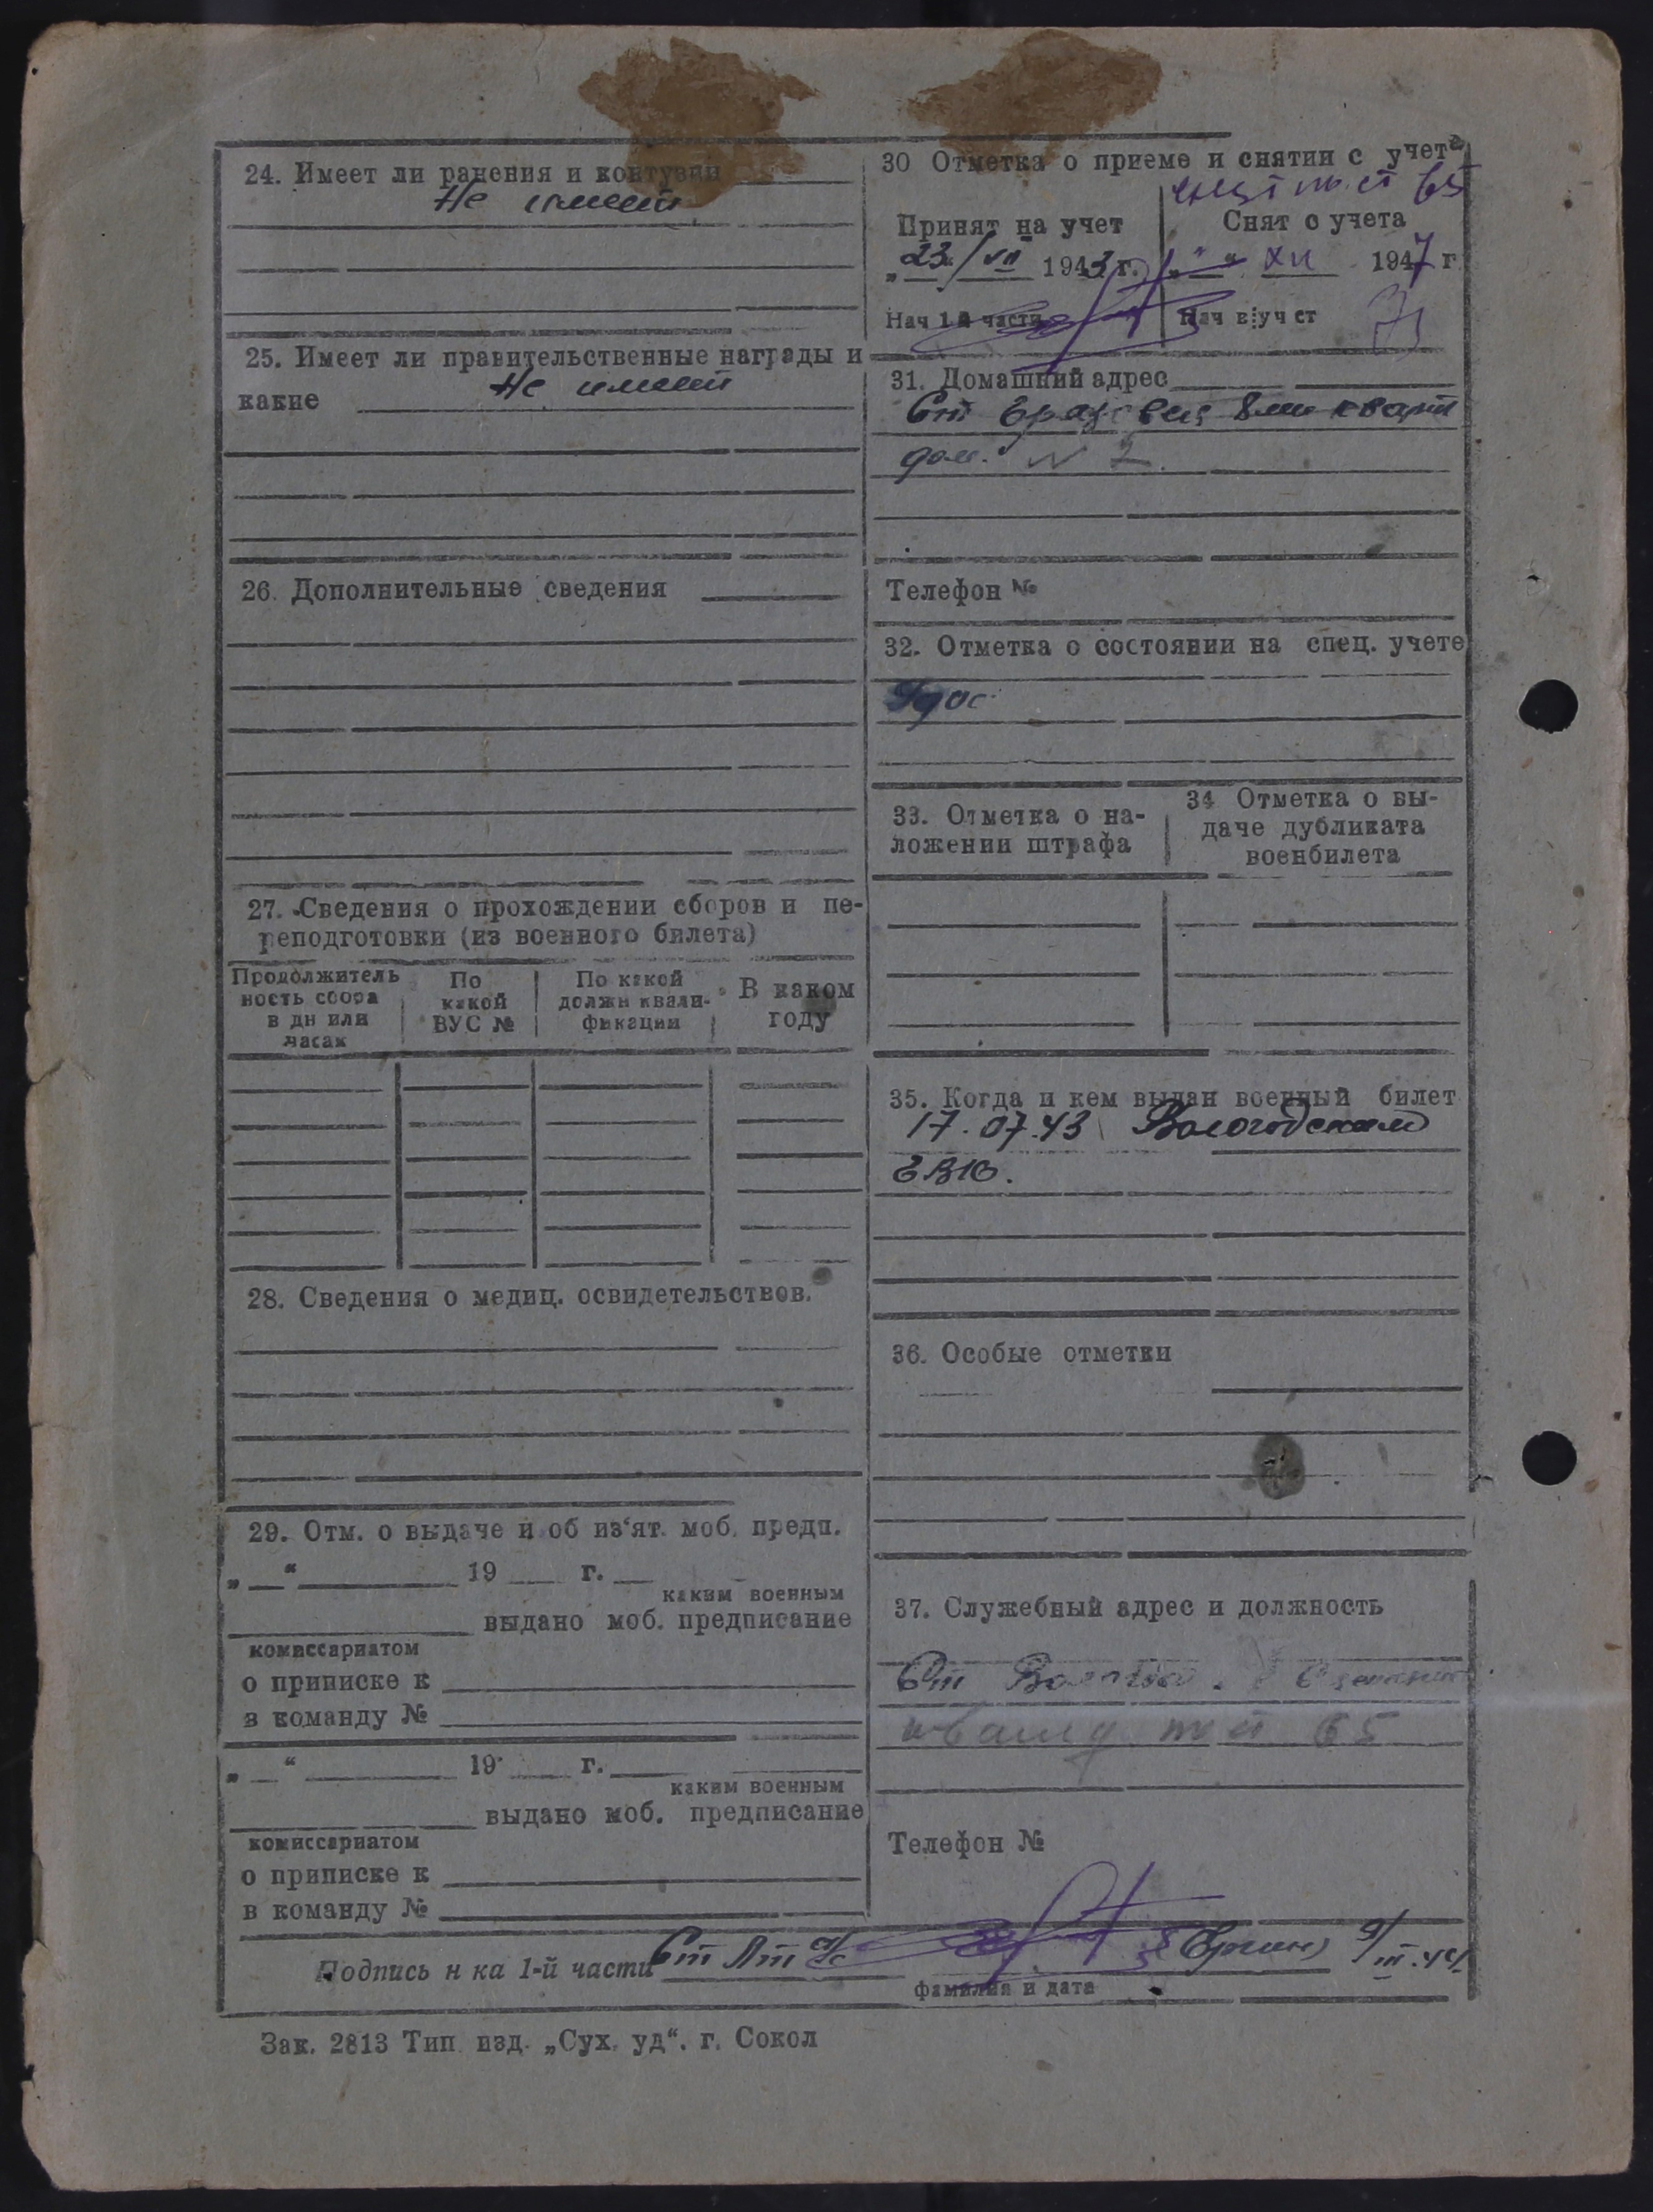 24. Имеет ли ранения и контузии
Не имеет
25. Имеет ли правительственные награды и
какие Не имеет
26. Дополнительные сведения
27. Сведения о прохождении сборов и пе-
реподготовки (из военного билета)
Продолжитель
ность сбора
в дн или
часах
По
какой
ВУС №
По какой
должн квали-
фикации
В каком
году
28. Сведения о медиц. освидетельствов.
29. Отм. о выдаче и об из‘ят. моб. предп.
„ “ 19 г.
каким военным
выдано моб. предписание
комиссариатом
о приписке к
в команду №
„ “ 19 г.
каким военным
выдано моб. предписание
комиссариатом
о приписке к
в команду №
30 Отметка о приеме и снятии с учета
65
Принят на учет
„23“/VII 1943 г.
Нач 1й части
Снят с учета
„ “ XII 1947 г
Нач в уч ст
31. Домашний адрес
Ст 8ми кварт
дом. N 2.
Телефон №
32. Отметка о состоянии на спец. учете
33. Отметка о на-
ложении штрафа
34 Отметка о вы-
даче дубликата
военбилета
35. Когда и кем выдан военный билет
17.07.43 Вологодским
ГВК.
36. Особые отметки
37. Служебный адрес и должность
Ст Вологда.
65
Телефон №
Подпись н ка 1-й части Ст Лт а/с 9/III.44
фамилия и дата
Зак. 2813 Тип изд. „Сух. уд“. г. Сокол